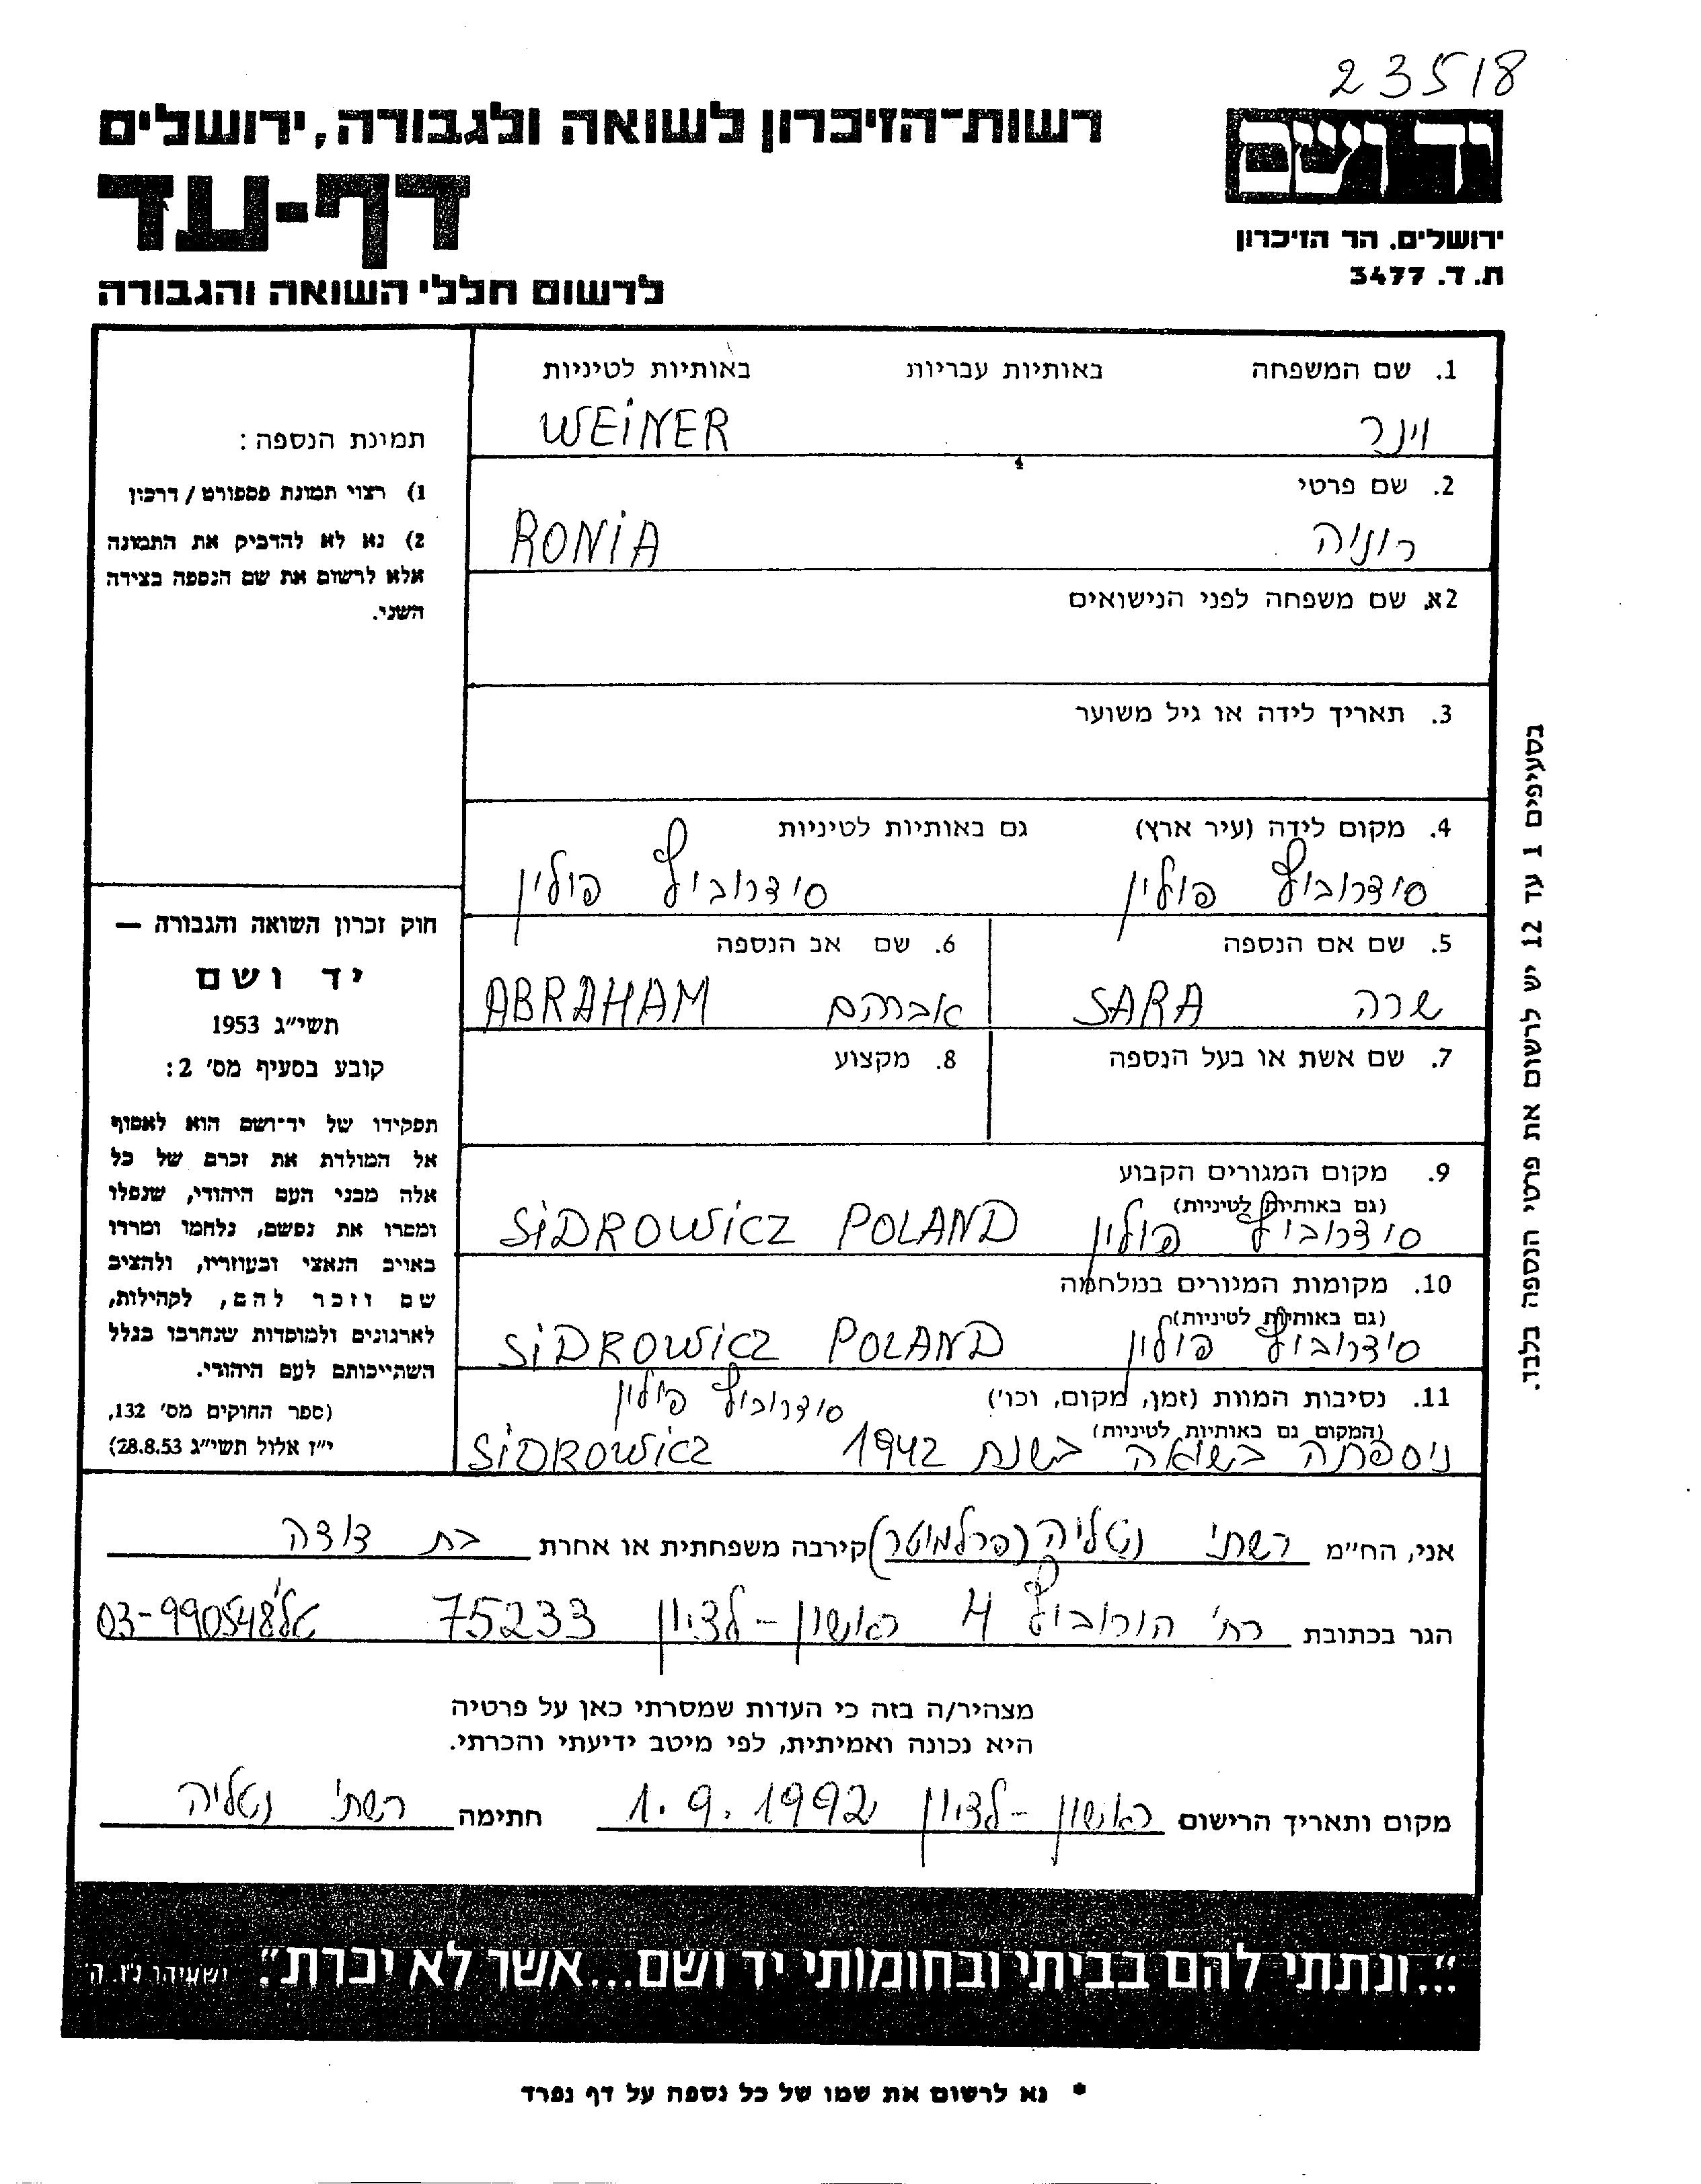 23518
רשות-הזיכרון לשואה ולגבורה, ירושלים
יד ושם
דף-עד
ירושלים. הר הזיכרון
ת. ד. 3477
לרשום חללי השואה והגבורה
1. שם המשפחה באותיות עבריות באותיות לטיניות
וינר WEINER
2. שם פרטי
רוניה RONIA
2א. שם משפחה לפני הנישואים
3. תאריך לידה או גיל משוער
4. מקום לידה (עיר ארץ) גם באותיות לטיניות
סידרוביץ פולין סידרוביץ פולין
5. שם אם הנספה 6. שם אב הנספה
שרה SARA אברהם ABRAHAM
7. שם אשת או בעל הנספה 8. מקצוע
9. מקום המגורים הקבוע
(גם באותיות לטיניות)
סידרוביץ פולין SIDROWICZ POLAND
10. מקומות המגורים במלחמה
(גם באותיות לטיניות)
סידרוביץ פולין SIDROWICZ POLAND
11. נסיבות המוות (זמן, מקום, וכו') סידרוביץ פולין
(המקום גם באותיות לטיניות)
ניספתה בשואה בשנת 1942 SIDROWICZ
תמונת הנספה:
1) רצוי תמונת פספורט / דרכון
2) נא לא להדביק את התמונה
אלא לרשום את שם הנספה בצידה
השני.
חוק זכרון השואה והגבורה —
יד ושם
תשי"ג 1953
קובע בסעיף מס' 2:
תפקידו של יד-ושם הוא לאסוף
אל המולדת את זכרם של כל
אלה מבני העם היהודי, שנפלו
ומסרו את נפשם, נלחמו ומרדו
באויב הנאצי ובעוזריו, ולהציב
שם וזכר להם, לקהילות,
לארגונים ולמוסדות שנחרבו בגלל
השתייכותם לעם היהודי.
(ספר החוקים מס' 132,
י"ז אלול תשי"ג 28.8.53)
בסעיפים 1 עד 12 יש לרשום את פרטי הנספה בלבד.
אני, הח"מ רשתי נטליה (פרלמוטר) קירבה משפחתית או אחרת בת דודה
הגר בכתובת רח' הורוביץ 4 ראשון-לציון 75233 טל' 03-990548
מצהיר/ה בזה כי העדות שמסרתי כאן על פרטיה
היא נכונה ואמיתית, לפי מיטב ידיעתי והכרתי.
מקום ותאריך הרישום ראשון-לציון 1.9.1992 חתימה רשתי נטליה
"...ונתתי להם בביתי ובחומותי יד ושם...אשר לא יכרת". ישעיהו נ"ו, ה'
* נא לרשום את שמו של כל נספה על דף נפרד